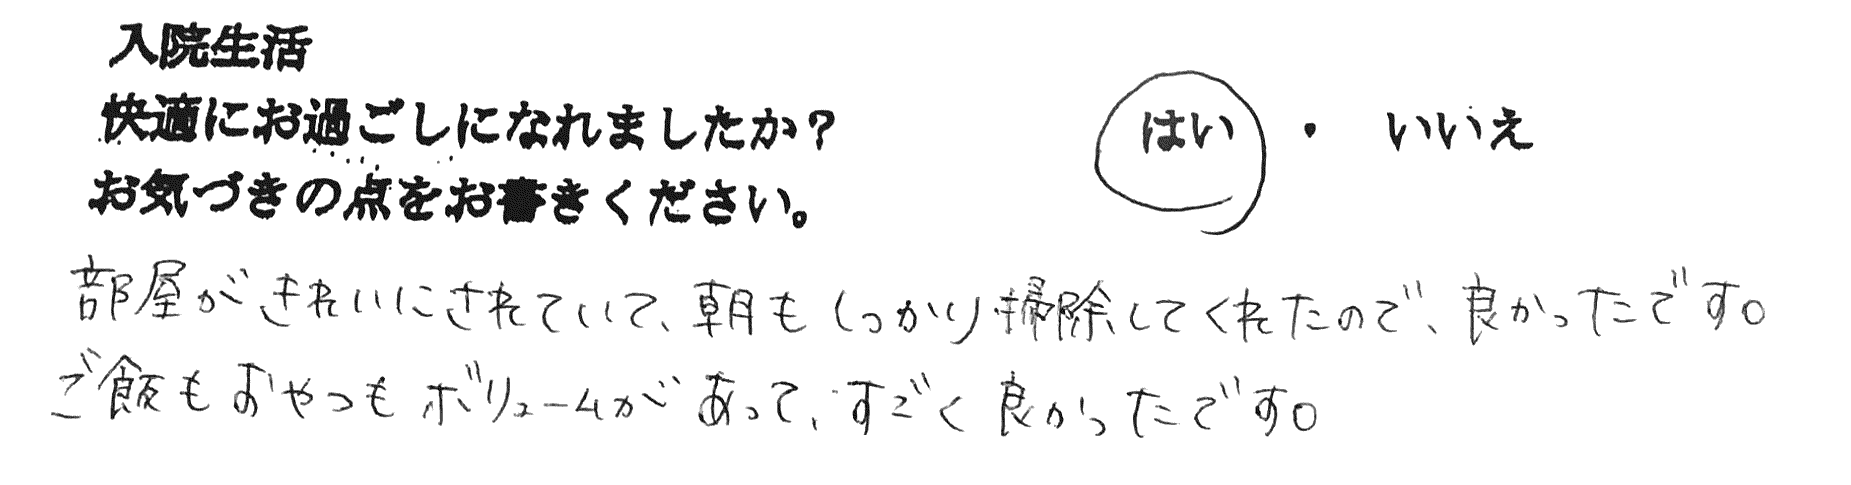 入院生活
快適にお過ごしになれましたか? はい ・ いいえ
お気づきの点をお書きください。
部屋がきれいにされていて、朝もしっかり掃除してくれたので、良かったです。
ご飯もおやつもボリュームがあって、すごく良かったです。